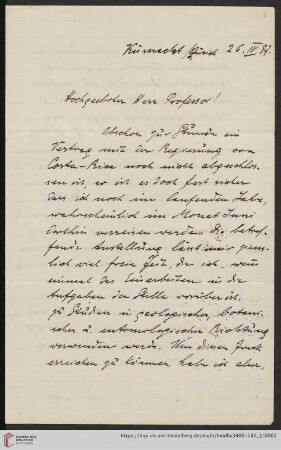 Küsnacht/Zürich 26. IV. 87.
Hochgeehrter Herr Professor!
Obschon zur Stunde ein
Vertrag mit der Regierung von
Costa-Rica noch nicht abgeschlos-
sen ist, so ist es doch fast sicher
dass ich noch im laufenden Jahre,
wahrscheinlich im Monat Juni
dorthin verreisen werde. Die betref-
fende Anstellung lässt mir ziem-
lich viel freie Zeit, die ich, wenn
einmal das Einarbeiten in die
Aufgaben der Stelle vorüber ist,
zu Studien in geologischer, botani-
scher u. entomologischer Richtung
verwenden werde. Um diesen Zweck
erreichen zu können, habe ich aber,
https://digi.ub.uni-heidelberg.de/diglit/heidhs3400-18E_3/0001